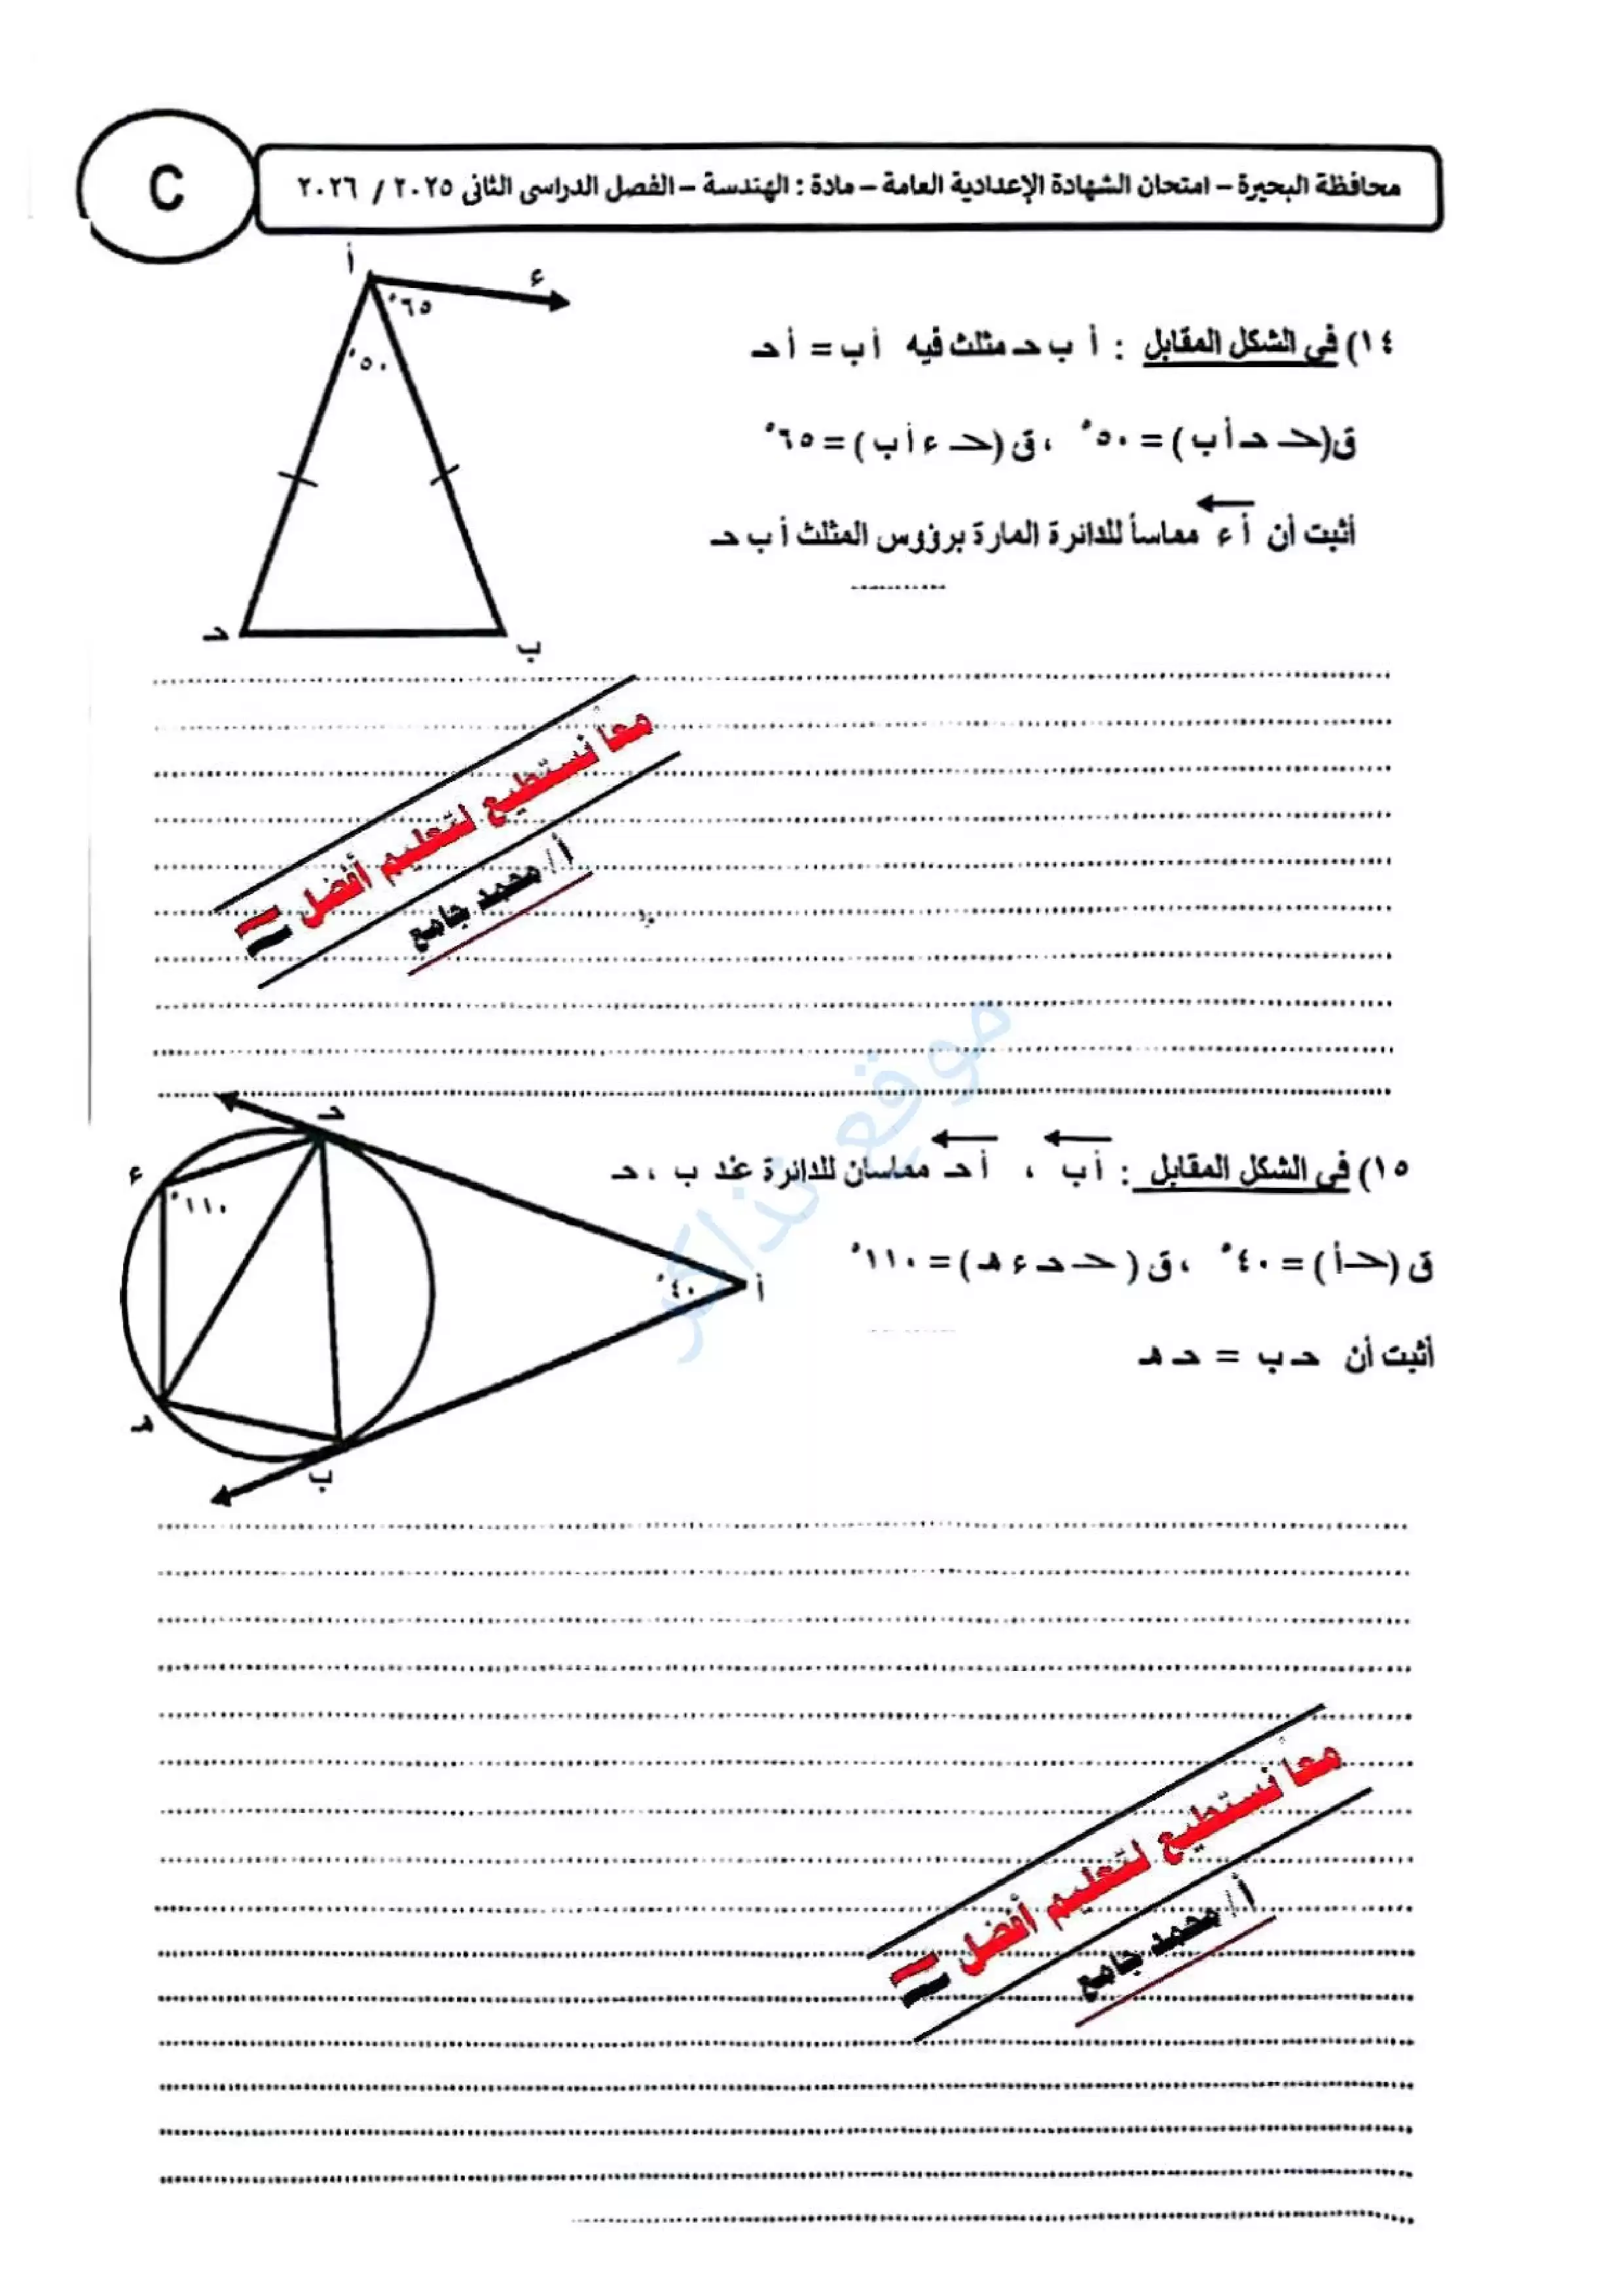 C
محافظة البحيرة – امتحان الشهادة الإعدادية العامة – مادة : الهندسة – الفصل الدراسى الثانى ٢٠٢٥ / ٢٠٢٦
أ
ء
٦٥°
٥٠°
حـ
ب
١٤) فى الشكل المقابل : أ ب حـ مثلث فيه أب = أحـ
ق(حـ أ ب) = ٥٠° ، ق(ء أ ب) = ٦٥°
أثبت أن أ ء مماساً للدائرة المارة برؤوس المثلث أ ب حـ
معاً نستطيع لتعليم أفضل
أ/ محمد جامع
موقع تذاكر
١٥) فى الشكل المقابل : أب ، أحـ مماسان للدائرة عند ب ، حـ
ق (أ) = ٤٠° ، ق (حـ ء هـ) = ١١٠°
أثبت أن حـ ب = حـ هـ
حـ
ء
١١٠°
٤٠°
أ
هـ
ب
معاً نستطيع لتعليم أفضل
أ/ محمد جامع